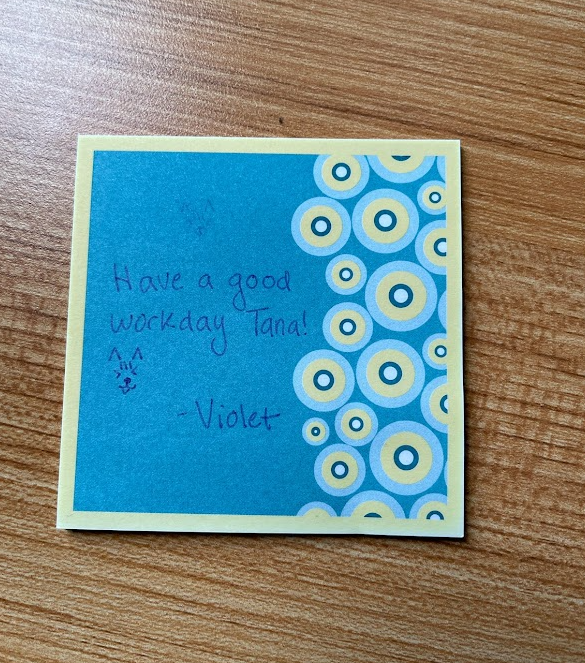 Have a good
workday Tana!
-Violet